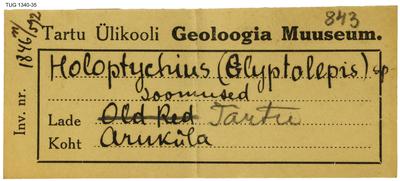 TUG 1340-35
843
Tartu Ülikooli Geoloogia Muuseum.
Inv. nr. 1846
Holoptychius (Glyptolepis) sp
soomused
Lade Old Red Tartu
Koht Aruküla